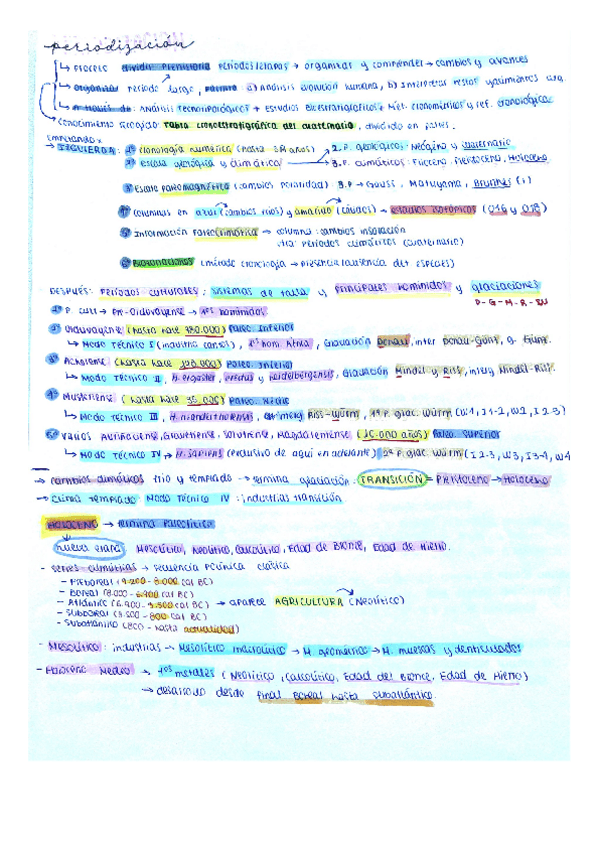 periodización
↳ Proceso dividir Prehistoria períodos/etapas → organizar y comprender → cambios y avances
↳ Organizar período largo, a) Análisis evolución humana, b) Interpretar restos yacimientos
↳ A través de: Análisis tecnotipológicos + estudios bioestratigráficos + Mét. cronométricos y ref. cronológica
Conocimiento recogido: Tabla cronoestratigráfica del cuaternario, dividido en partes.
→ IZQUIERDA: 1º cronología numérica 2. P. geológicos: Neógeno y cuaternario
2º escala geológica y climática 3. P. climáticos: Plioceno, Pleistoceno, Holoceno
3º Escala paleomagnética (cambios polaridad): 3.P → Gauss, Matuyama, Brunhes (+)
4º columnas en azul (cambios fríos) y amarillo (cálidos) → estadios isotópicos (O16 y O18)
5º Información Paleoclimática → columna: cambios insolación
otra: períodos climáticos (cuaternario)
6º Biozonaciones (método cronología → presencia/ausencia de + especies)
DESPUÉS: Períodos culturales; sistemas de talla y principales homínidos y glaciaciones
D - G - M - R - W
1º P. cult → Pre-Oldovayense → 1os homínidos
2º Olduvayense (hasta hace Paleo. Inferior
↳ Modo Técnico I (industria cantos), 1º hom. África, Glaciación Donau, inter Donau-Günz, g. Günz.
3º Achelense (hasta hace Paleo. Inferior
↳ Modo Técnico II, H. ergaster, erectus y heidelbergensis, Glaciación Mindel y Riss, interg Mindel-Riss.
4º Musteriense (hasta hace 35.000) Paleo. Medio
↳ Modo Técnico III, H. neanderthalensis, Riss-Würm, 1ª P. glac. Würm (W1, I 1-2, W2, I 2-3)
Varios Auriñaciense, Gravetiense, Solutrense, Magdaleniense Paleo. Superior
↳ Modo Técnico IV → H. Sapiens (exclusivo de aquí en adelante) 2ª P. glac. Würm (I 2-3, W3, I 3-4, W4
→ cambios climáticos frío y templado → termina glaciación: TRANSICIÓN = Pleistoceno → Holoceno
→ Clima templado Modo Técnico IV: industrias transición
HOLOCENO → termina Paleolítico
↳ nueva etapa Mesolítico, Neolítico, Calcolítico, Edad de Bronce, Edad de Hierro.
- series climáticas → secuencia polínica clásica
– Preboreal (9.200 - 8.000 cal BC)
– Boreal (8.000 - 6.900 cal BC)
– Atlántico (6.900 - 3.500 cal BC) → aparece AGRICULTURA (Neolítico)
– Subboreal (3.500 - 800 cal BC)
– Subatlántico (800 - hasta actualidad)
- Mesolítico: industrias → Mesolítico macrolítico → M. geométrico → M. muescas y denticulados
- Holoceno Medio → 1os metales (Neolítico, Calcolítico, Edad del Bronce, Edad de Hierro)
→ desarrollo desde final Boreal hasta subatlántico.